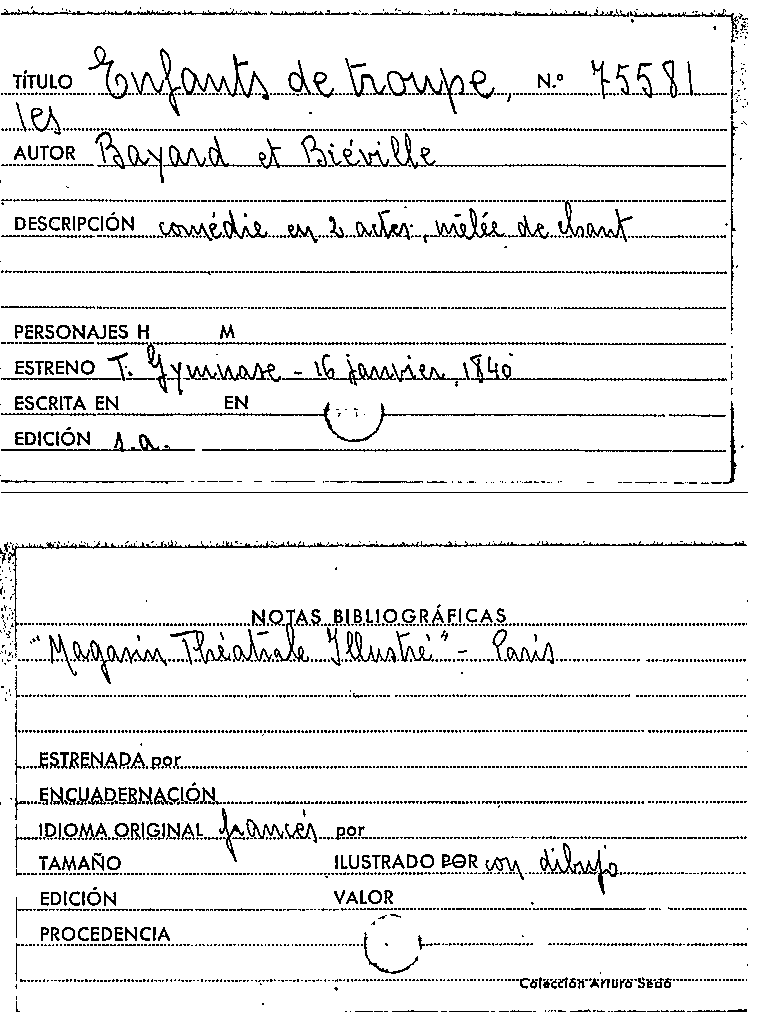 TÍTULO Enfants de troupe, N.º 75581
les
AUTOR Bayard et Biéville
DESCRIPCIÓN comédie en 2 actes, mêlée de chant
PERSONAJES H M
ESTRENO T. Gymnase - 16 janvier, 1840
ESCRITA EN EN
EDICIÓN s.a.
NOTAS BIBLIOGRÁFICAS
"Magasin Théatrale Illustré" - Paris
ESTRENADA por
ENCUADERNACIÓN
IDIOMA ORIGINAL francés por
TAMAÑO ILUSTRADO POR con dibujo
EDICIÓN VALOR
PROCEDENCIA
Colección Arturo Sedó